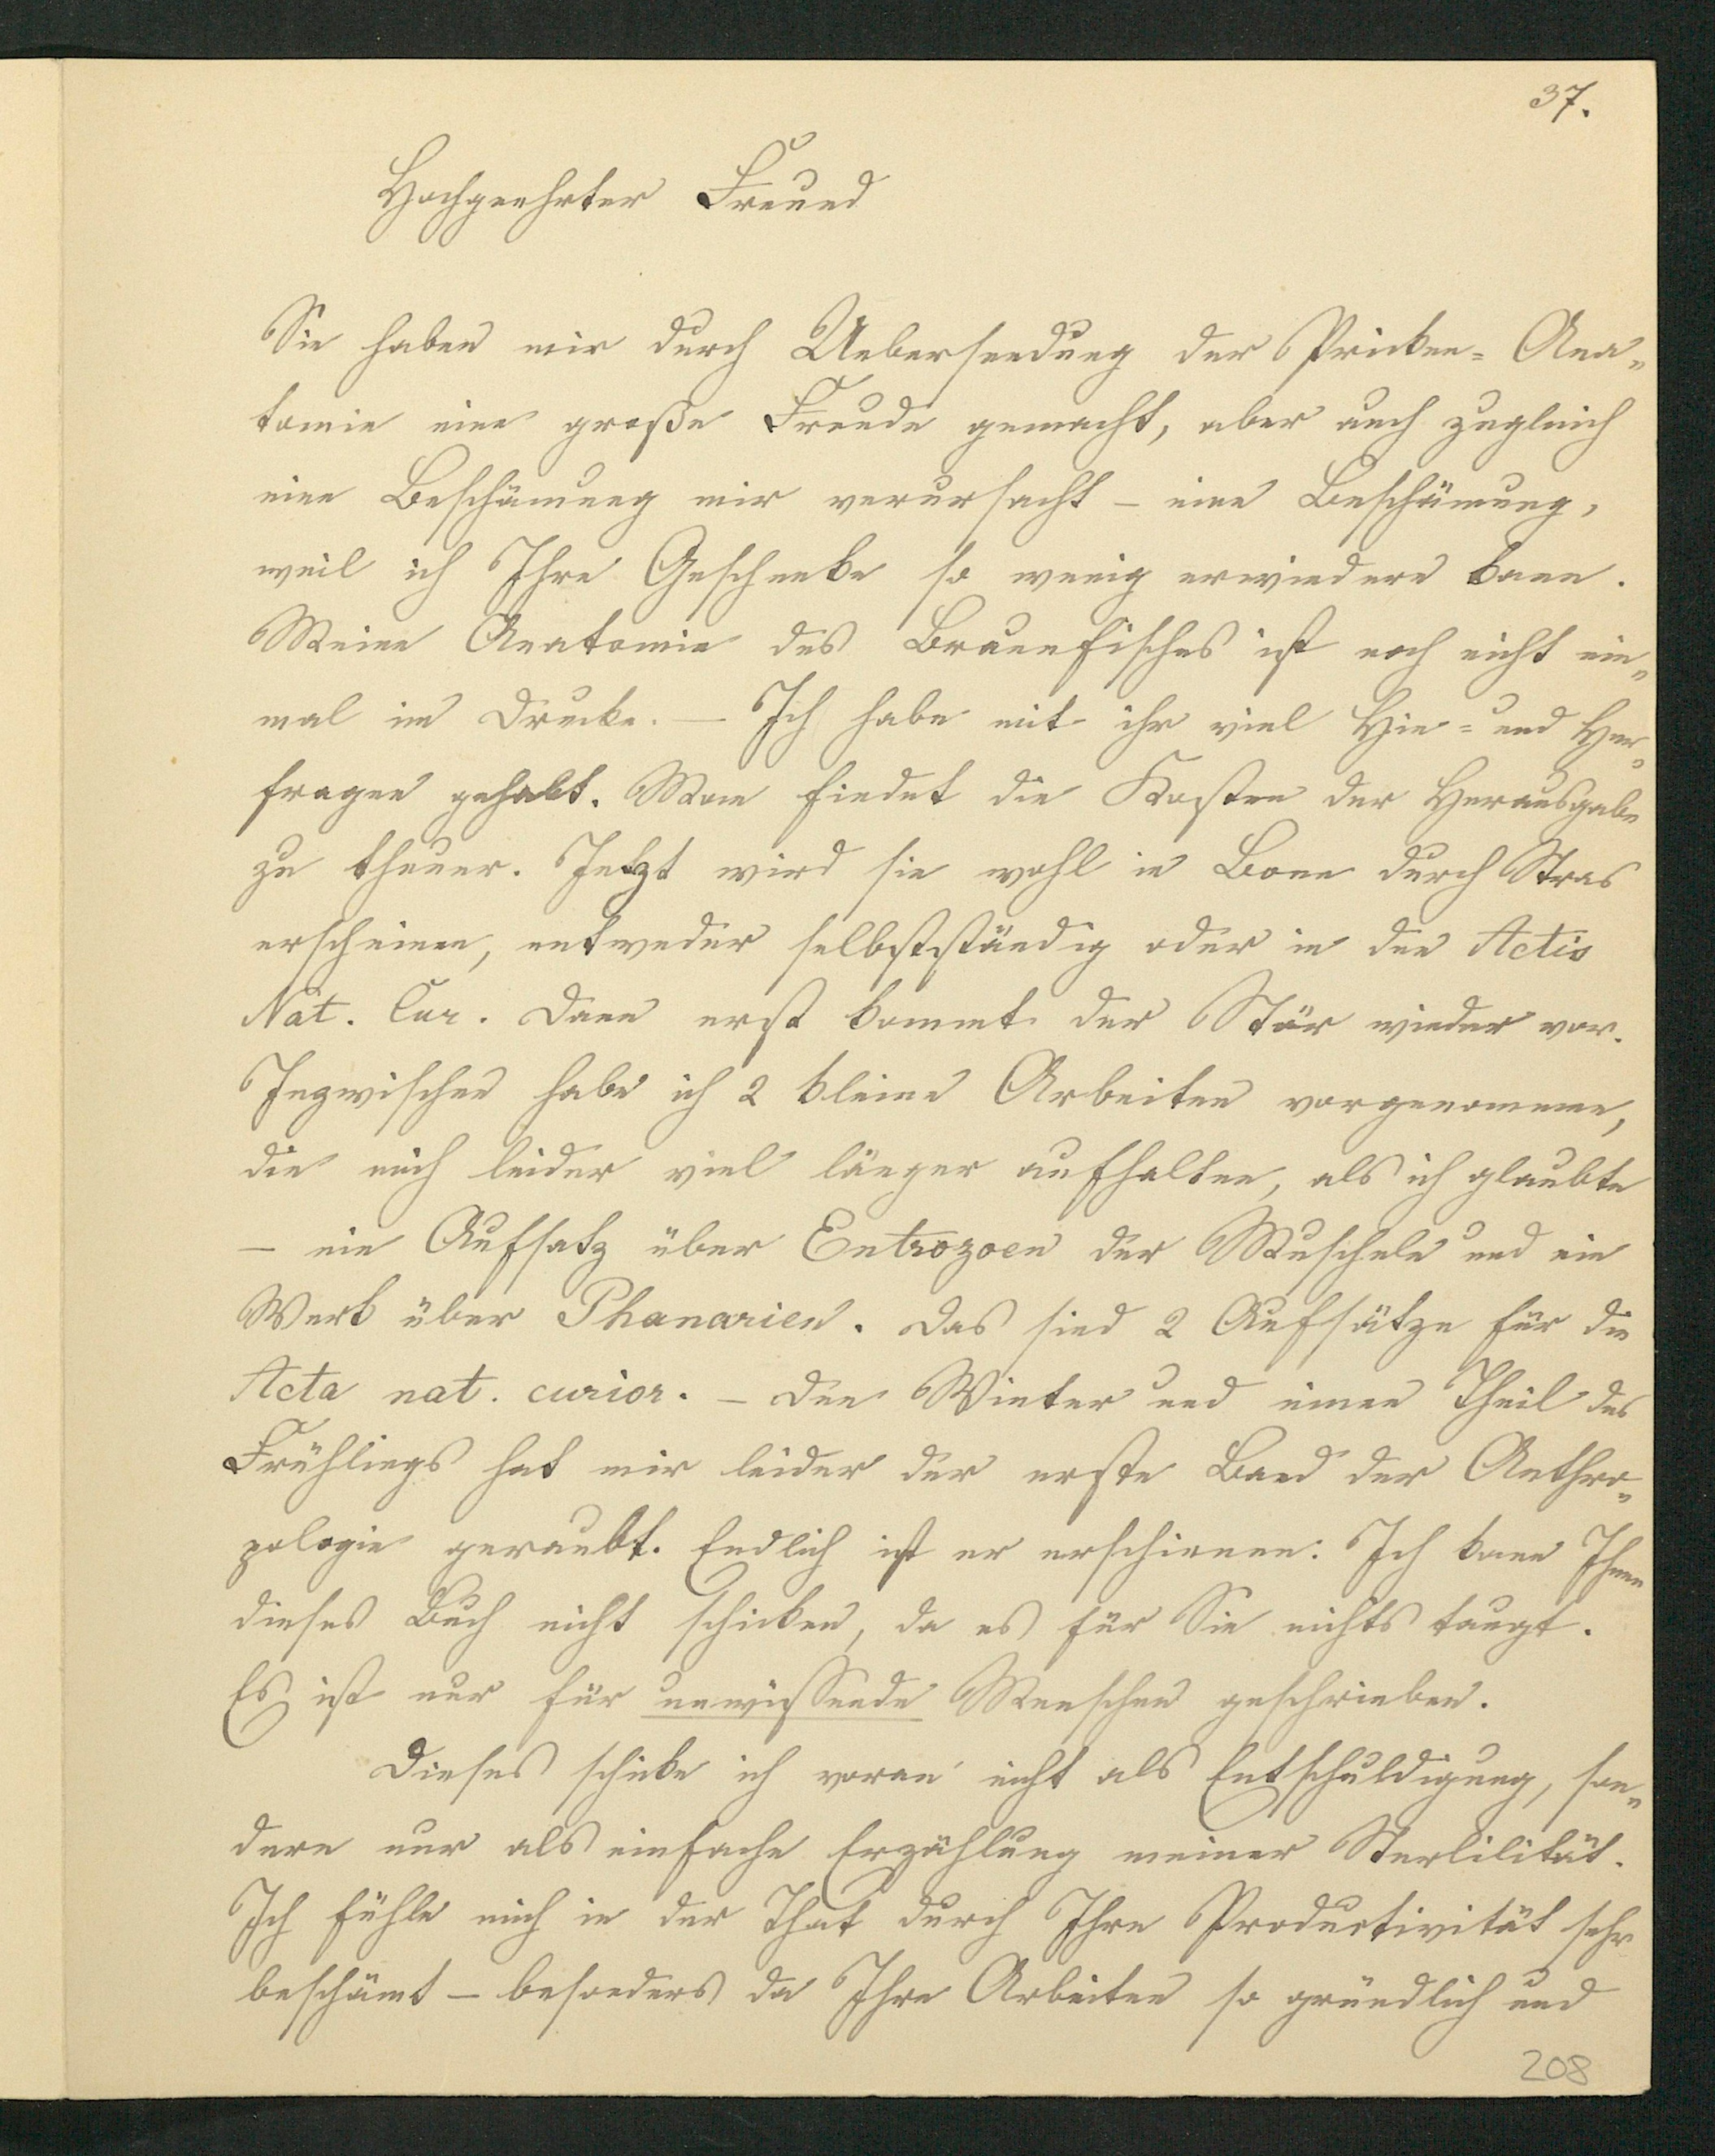 37.
Hochgeehrter Freund
Sie haben mir durch Uebersendung der Pricken- Ana-
tomie eine große Freude gemacht, aber auch zugleich
eine Beschämung mir verursacht – eine Beschämung,
weil ich Ihre Geschenke so wenig erwiedern kann.
Meine Anatomie des Braunfisches ist noch nicht ein-
mal im Drucke. – Ich habe mit ihr viel Hin- und Her-
fragen gehabt. Man findet die Kosten der Herausgabe
zu theuer. Jetzt wird sie wohl in Bonn durch
erscheinen, entweder selbstständig oder in den Actis
Nat. Cur. Dann erst kommt der Stör wieder vor.
Inzwischen habe ich 2 kleine Arbeiten vorgenommen,
die mich leider viel länger aufhalten, als ich glaubte
– ein Aufsatz über Entrozoen der Muscheln und ein
Werk über Phanarien. Das sind 2 Aufsätze für die
Acta nat. curior. – Den Winter und einen Theil des
Frühlings hat mir leider der erste Band der Anthro-
pologie geraubt. Endlich ist er erschienen. Ich kann Ihnen
dieses Buch nicht schicken, da es für Sie nichts taugt.
Es ist nur für unwissende Menschen geschrieben.
Dieses schicke ich voran nicht als Entschuldigung, son-
dern nur als einfache Erzählung meiner Sterlilität.
Ich fühle mich in der That durch Ihre Productivität sehr
beschämt – besonders da Ihre Arbeiten so gründlich und
208